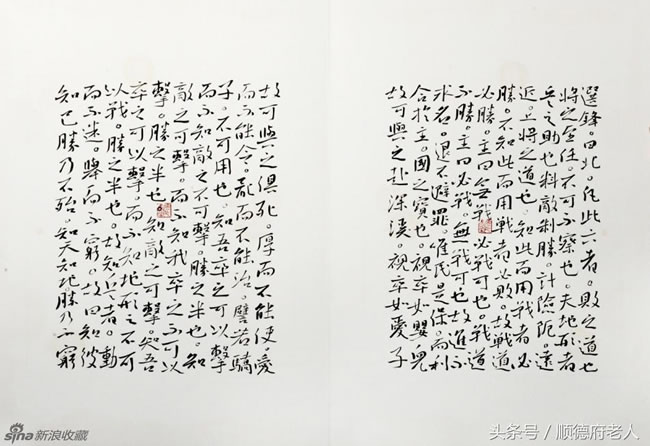 選鋒。曰北。凡此六者。敗之道也
將之至任。不可不察也。夫地形者
兵之助也料敵制勝。計險阨。遠
近。上將之道也。知此而用戰者必
勝。不知此而用戰者必敗。故戰道
必勝。主曰無戰。必戰可也。戰道
不勝。主曰必戰。無戰可也故進不
求名。退不避罪。唯民是保。而利
合於主。國之寶也。視卒如嬰兒
故可與之赴深溪。視卒如愛子
故可與之俱死。厚而不能使。愛
而不能令。亂而不能治。譬若驕
子。不可用也。知吾卒之可以擊
而不知敵之不可擊。勝之半也。知
敵之可擊。而不知我卒之不可以
擊。勝之半也。知敵之可擊。知吾
卒之可以擊。而不知地形之不可
以戰。勝之半也。故知兵者。動
而不迷。舉而不窮。故曰知彼
知己勝乃不殆。知天知地。勝乃不窮
sina新浪收藏
头条号 / 顺德府老人